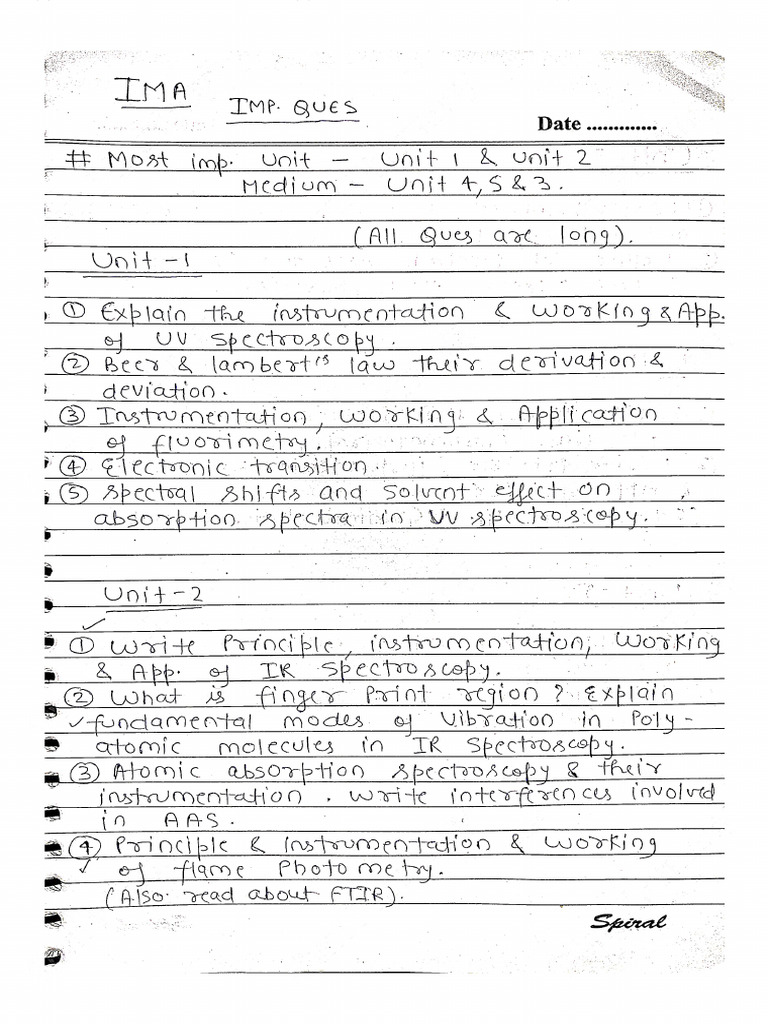 IMA
IMP. QUES
Date .............
# Most imp. Unit - Unit 1 & Unit 2
Medium - Unit 4, 5 & 3.
(All Ques are long).
Unit - 1
① Explain the instrumentation & working & App.
of UV spectroscopy.
② Beer & lambert's law their derivation &
deviation.
③ Instrumentation, working & Application
of fluorimetry.
④ Electronic transition.
⑤ Spectral shifts and Solvent effect on
absorption spectra in UV spectroscopy.
Unit - 2
① Write Principle, instrumentation, working
& App. of IR Spectroscopy.
② What is finger Print region? Explain
✓fundamental modes of Vibration in Poly-
atomic molecules in IR Spectroscopy.
③ Atomic absorption spectroscopy & their
instrumentation. Write interferences involved
in AAS.
④ Principle & instrumentation & working
✓ of flame Photometry.
(Also read about FTIR).
Spiral